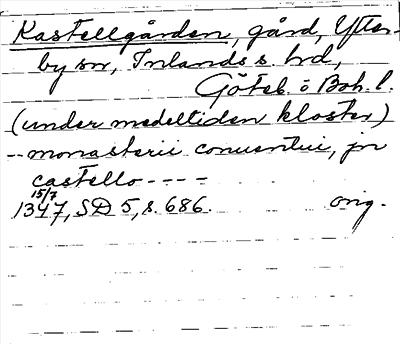 Kastellgården, gård, Ytter-
by sn, Inlands s. hd,
Göteb. o Boh. l.
(under medeltiden kloster)
-- monasterii conuentui, in
castello ----
15/7
1347, SD 5, s. 686. orig.